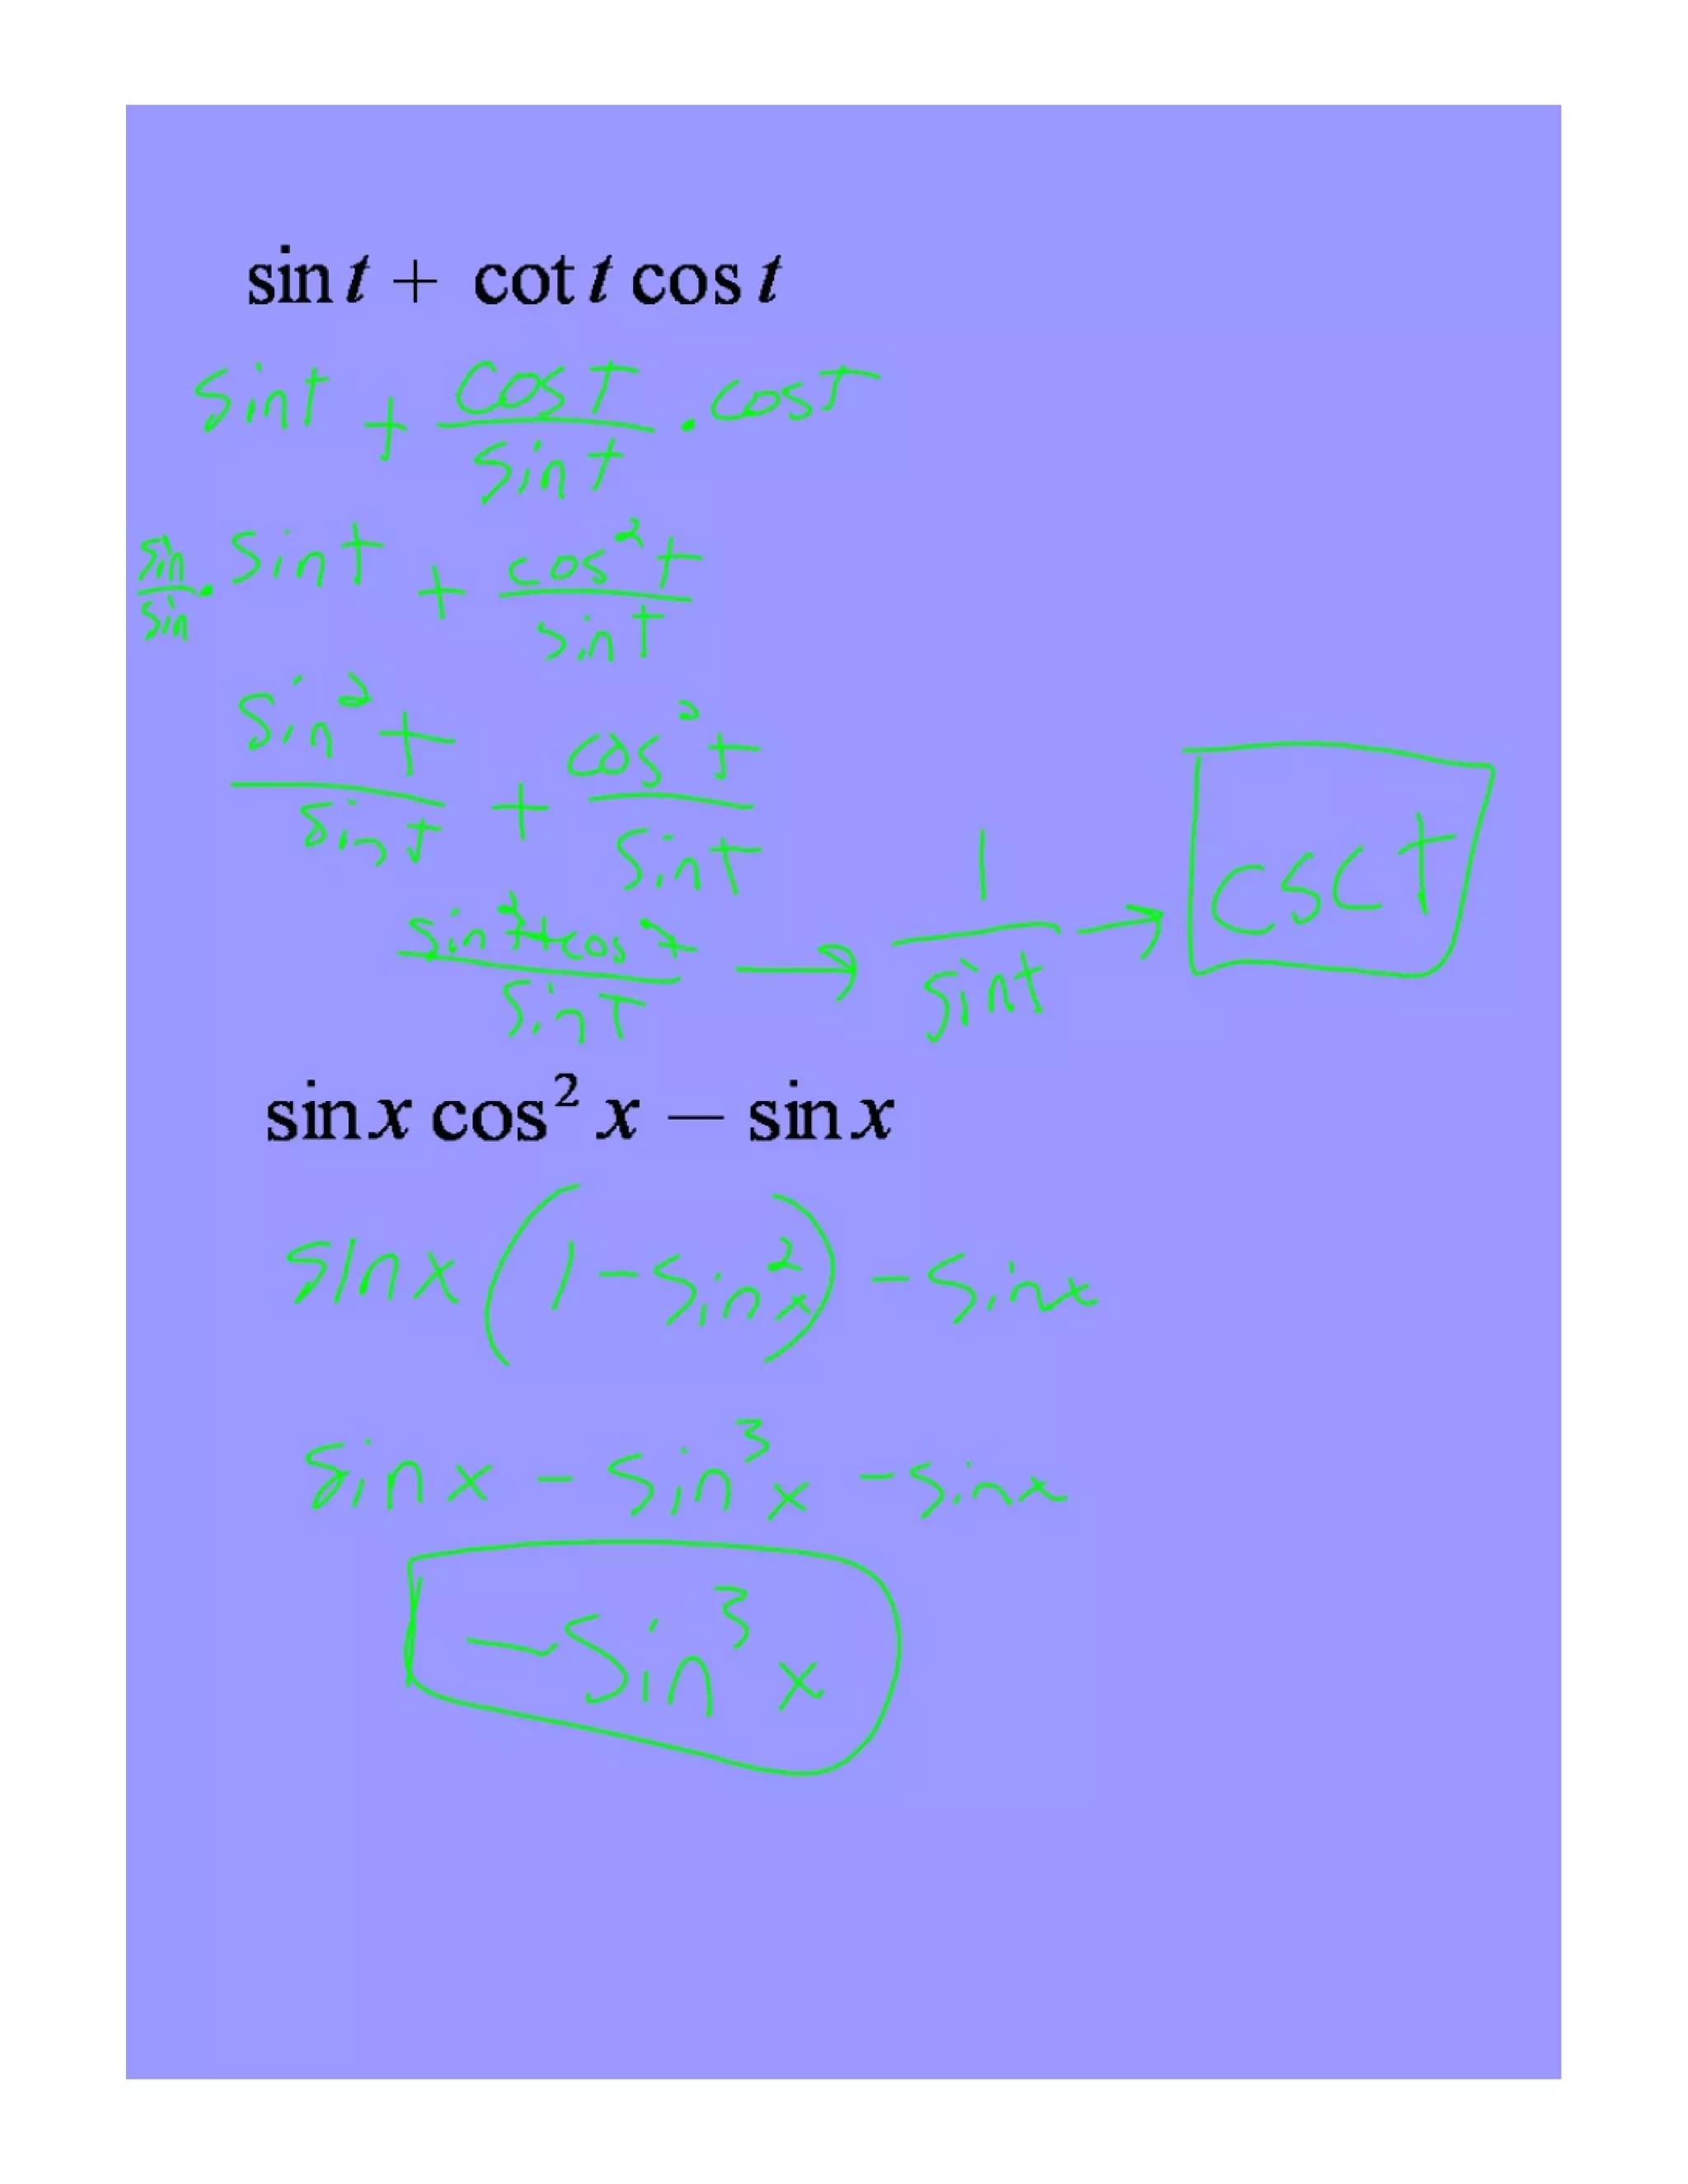 sin t + cot t cos t
sin t + cos t / sin t · cos t
sin / sin · sin t + cos² t / sin t
sin² t / sin t + cos² t / sin t
sin² t + cos² t / sin t → 1 / sin t → csc t
sin x cos² x − sin x
sin x (1 − sin² x) − sin x
sin x − sin³ x − sin x
− sin³ x